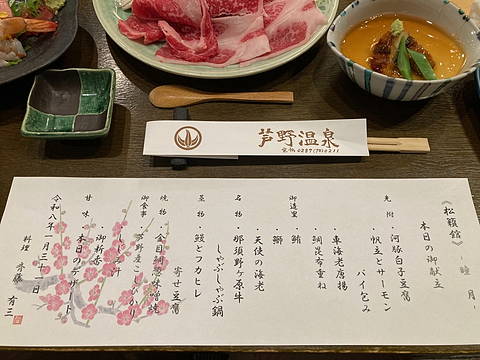 芦野温泉
電話 0287(70)0211
《松籟館》
~睦月~
本日の御献立
先附
・河豚白子豆腐
・帆立とサーモン
パイ包み
・車海老唐揚
・鯛昆布重ね
御造里
・鮪
・鰤
・天使の海老
名物
・那須野ヶ原牛
しゃぶしゃぶ鍋
蒸物
・鰻とフカヒレ
寄せ豆腐
焼物
・金目鯛葱味噌焼
御食事
・芦野産こしひかり
・しじみ汁
・御新香
甘味
・本日のデザート
令和八年一月三十一日
料理 斉藤 有三